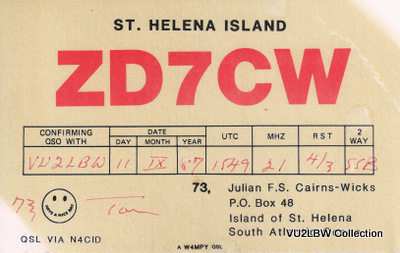 ST. HELENA ISLAND
ZD7CW
CONFIRMING QSO WITH DATE DAY MONTH YEAR UTC MHZ RST 2 WAY
VU2LBW 11 IX 87 1549 21 4/3 SSB
73, Julian F.S. Cairns-Wicks
P.O. Box 48
Island of St. Helena
South Atl
73
HAVE A NICE DAY
QSL VIA N4CID
VU2LBW Collection
A W4MPY QSL